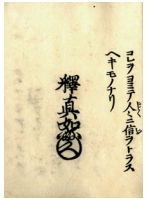 コレヲヨミテ人々ニ信ヲトラス
ヘキモノナリ
釋真如